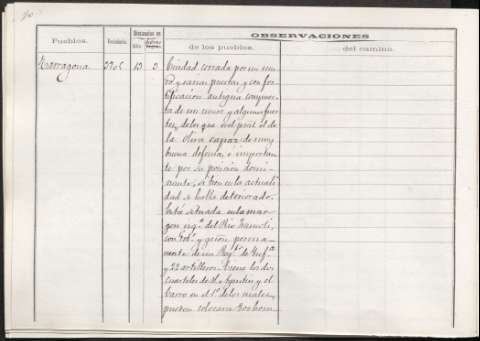 OBSERVACIONES
Pueblos.
Vecindario.
Distancias en
de los pueblos.
del camino.
Tarragona
13 3 Ciudad cerrada por un mu-
ro y varias puertas y con for-
tificacion antigua compues-
ta de un muro y algunos fuer-
tes, de los que es el pral. el de
la Oliva capaz de muy
buena defensa, e importan-
te por su posicion domi-
nante, si bien en la actuali-
dad se halla deteriorado.
Está situada en la mar-
gen izq.ª del Rio Francoli,
con Gob.r y gcion perma-
nente de un Reg.to de Inf.ª
y 22 artilleros. Tiene los dos
cuarteles de S. Agustin y el
Carro en el 1º de los cuales
pueden colocarse 800 hom